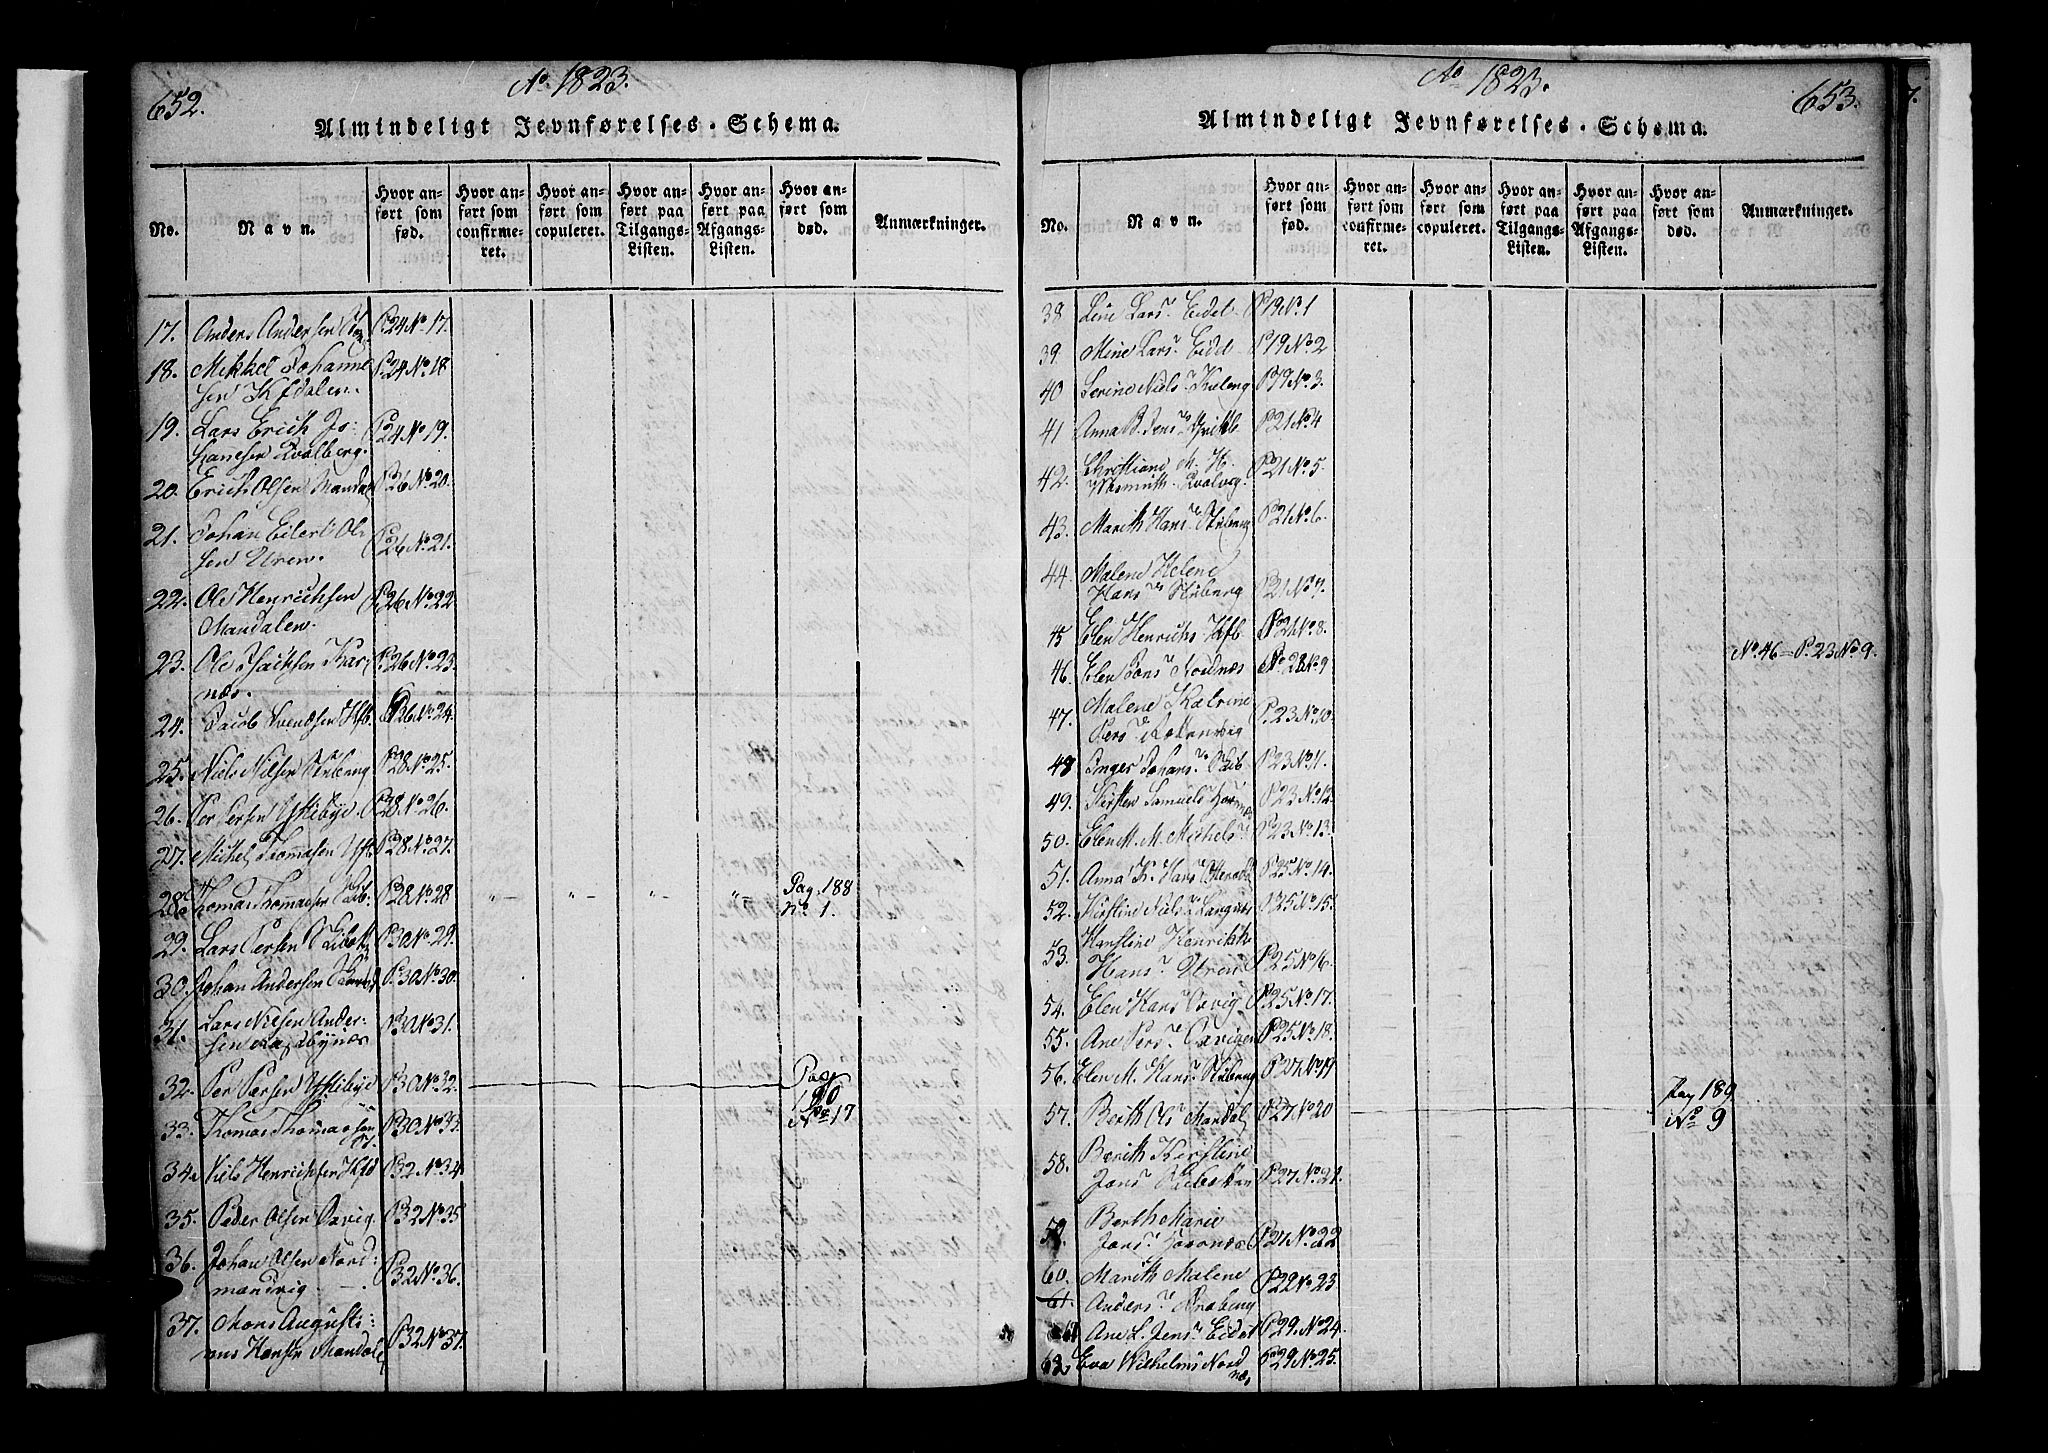 652.
Ao 1823.
Almindeligt Jevnførelses-Schema.
No.
Navn.
Hvor anført som fød.
Hvor anført som confirmeret.
Hvor anført som copuleret.
Hvor anført paa Tilgangs-Listen.
Hvor anført paa Afgangs-Listen.
Hvor anført som død.
Anmærkninger.
17. Anders Andersen P. 24 No. 17.
18. Mikkel Johanne
sen Kfdalen P. 24 No. 18
19. Lars Erich Jo-
hanesen Kvalberg. P. 24 No. 19.
20. Erich Olsen Mandal P. 26 No. 20.
21. Johan Eilert Ol-
sen Uren. P. 26 No. 21.
22. Ole Henrichsen
Mandalen. P. 26 No. 22.
23. Ole Isachsen Kar-
næs. P. 26 No. 23.
24. Jacob Svendsen Kfb. P. 26 No. 24.
25. Niels Nilsen P. 28 No. 25.
26. Per Persen P. 28 No. 26.
27. Michel Thomasen P. 28 No. 27.
28. Thomas Thomasen P. 28 No. 28 " - " - " - " - Pag. 188
No. 1.
29. Lars Persen P. 30 No. 29.
30. Johan Andersen P. 30 No. 30.
31. Lars Nilsen Ander-
sen P. 30 No. 31.
32. Per Persen P. 30 No. 32. Pag
190
No 17
33. Thomas Thomassen P. 30 No. 33.
34. Niels Henrichsen Kfd P. 32 No. 34
35. Peder Olsen P. 32 No. 35
36. Johan Olsen Nord-
mandvig P. 32 No. 36.
37. Mons Augusti-
nus Hansen Mandal P. 32 No. 37.
Ao 1823.
653.
Almindeligt Jevnførelses-Schema.
No.
Navn.
Hvor anført som fød.
Hvor anført som confirmeret.
Hvor anført som copuleret.
Hvor anført paa Tilgangs-Listen.
Hvor anført paa Afgangs-Listen.
Hvor anført som død.
Anmærkninger.
38 Line Larsr Eidet P. 19 No. 1
39. Mine Larsr Eidet P. 19 No. 2
40 Serine Nielsr P. 19 No. 3.
41 Anna B. Jensr P. 21 No. 4
42. Christiane M. H.
Wasmuth Qvalvog. P. 21 No. 5.
43. Marith Hansr P. 21 No. 6.
44. Malene Helene
Hansr P. 21 No. 7.
45 Elen Henrichs Kfb P. 21 No. 8.
46. Elen Jonsr Nordnæs P. 23 No. 9 No. 46 = P. 23 No. 9.
47. Malene Katrine
Persr P. 23 No. 10.
48 Inger Johansr P. 23 No. 11.
49. Kirsten Samuels P. 23 No. 12.
50. Elen M. M. Michelsr P. 23 No. 13.
51. Anna K. Hansr P. 25 No. 14.
52. Kirstine Nielsr Langnæs P. 25 No. 15.
53. Hanstine Henrikke
Hansr Uren P. 25 No. 16.
54. Elen Hansr P. 25 No. 17.
55. Ane Persr P. 25 No. 18.
56. Elen M. Hansr P. 27 No. 19
57. Berith Ols Mandal P. 27 No. 20 Pag 189
No 9
58. Berith Kirstine
Jonsr P. 27 No. 21.
59. Berth Marie
Jonsr P. 27 No. 22
60. Marith Malene
61. Andersr P. 22 No. 23
61 Ane L. Jensr Eidet P. 29. No. 24.
62 Eva Wilhelms Nord
næs P. 29 No. 25.